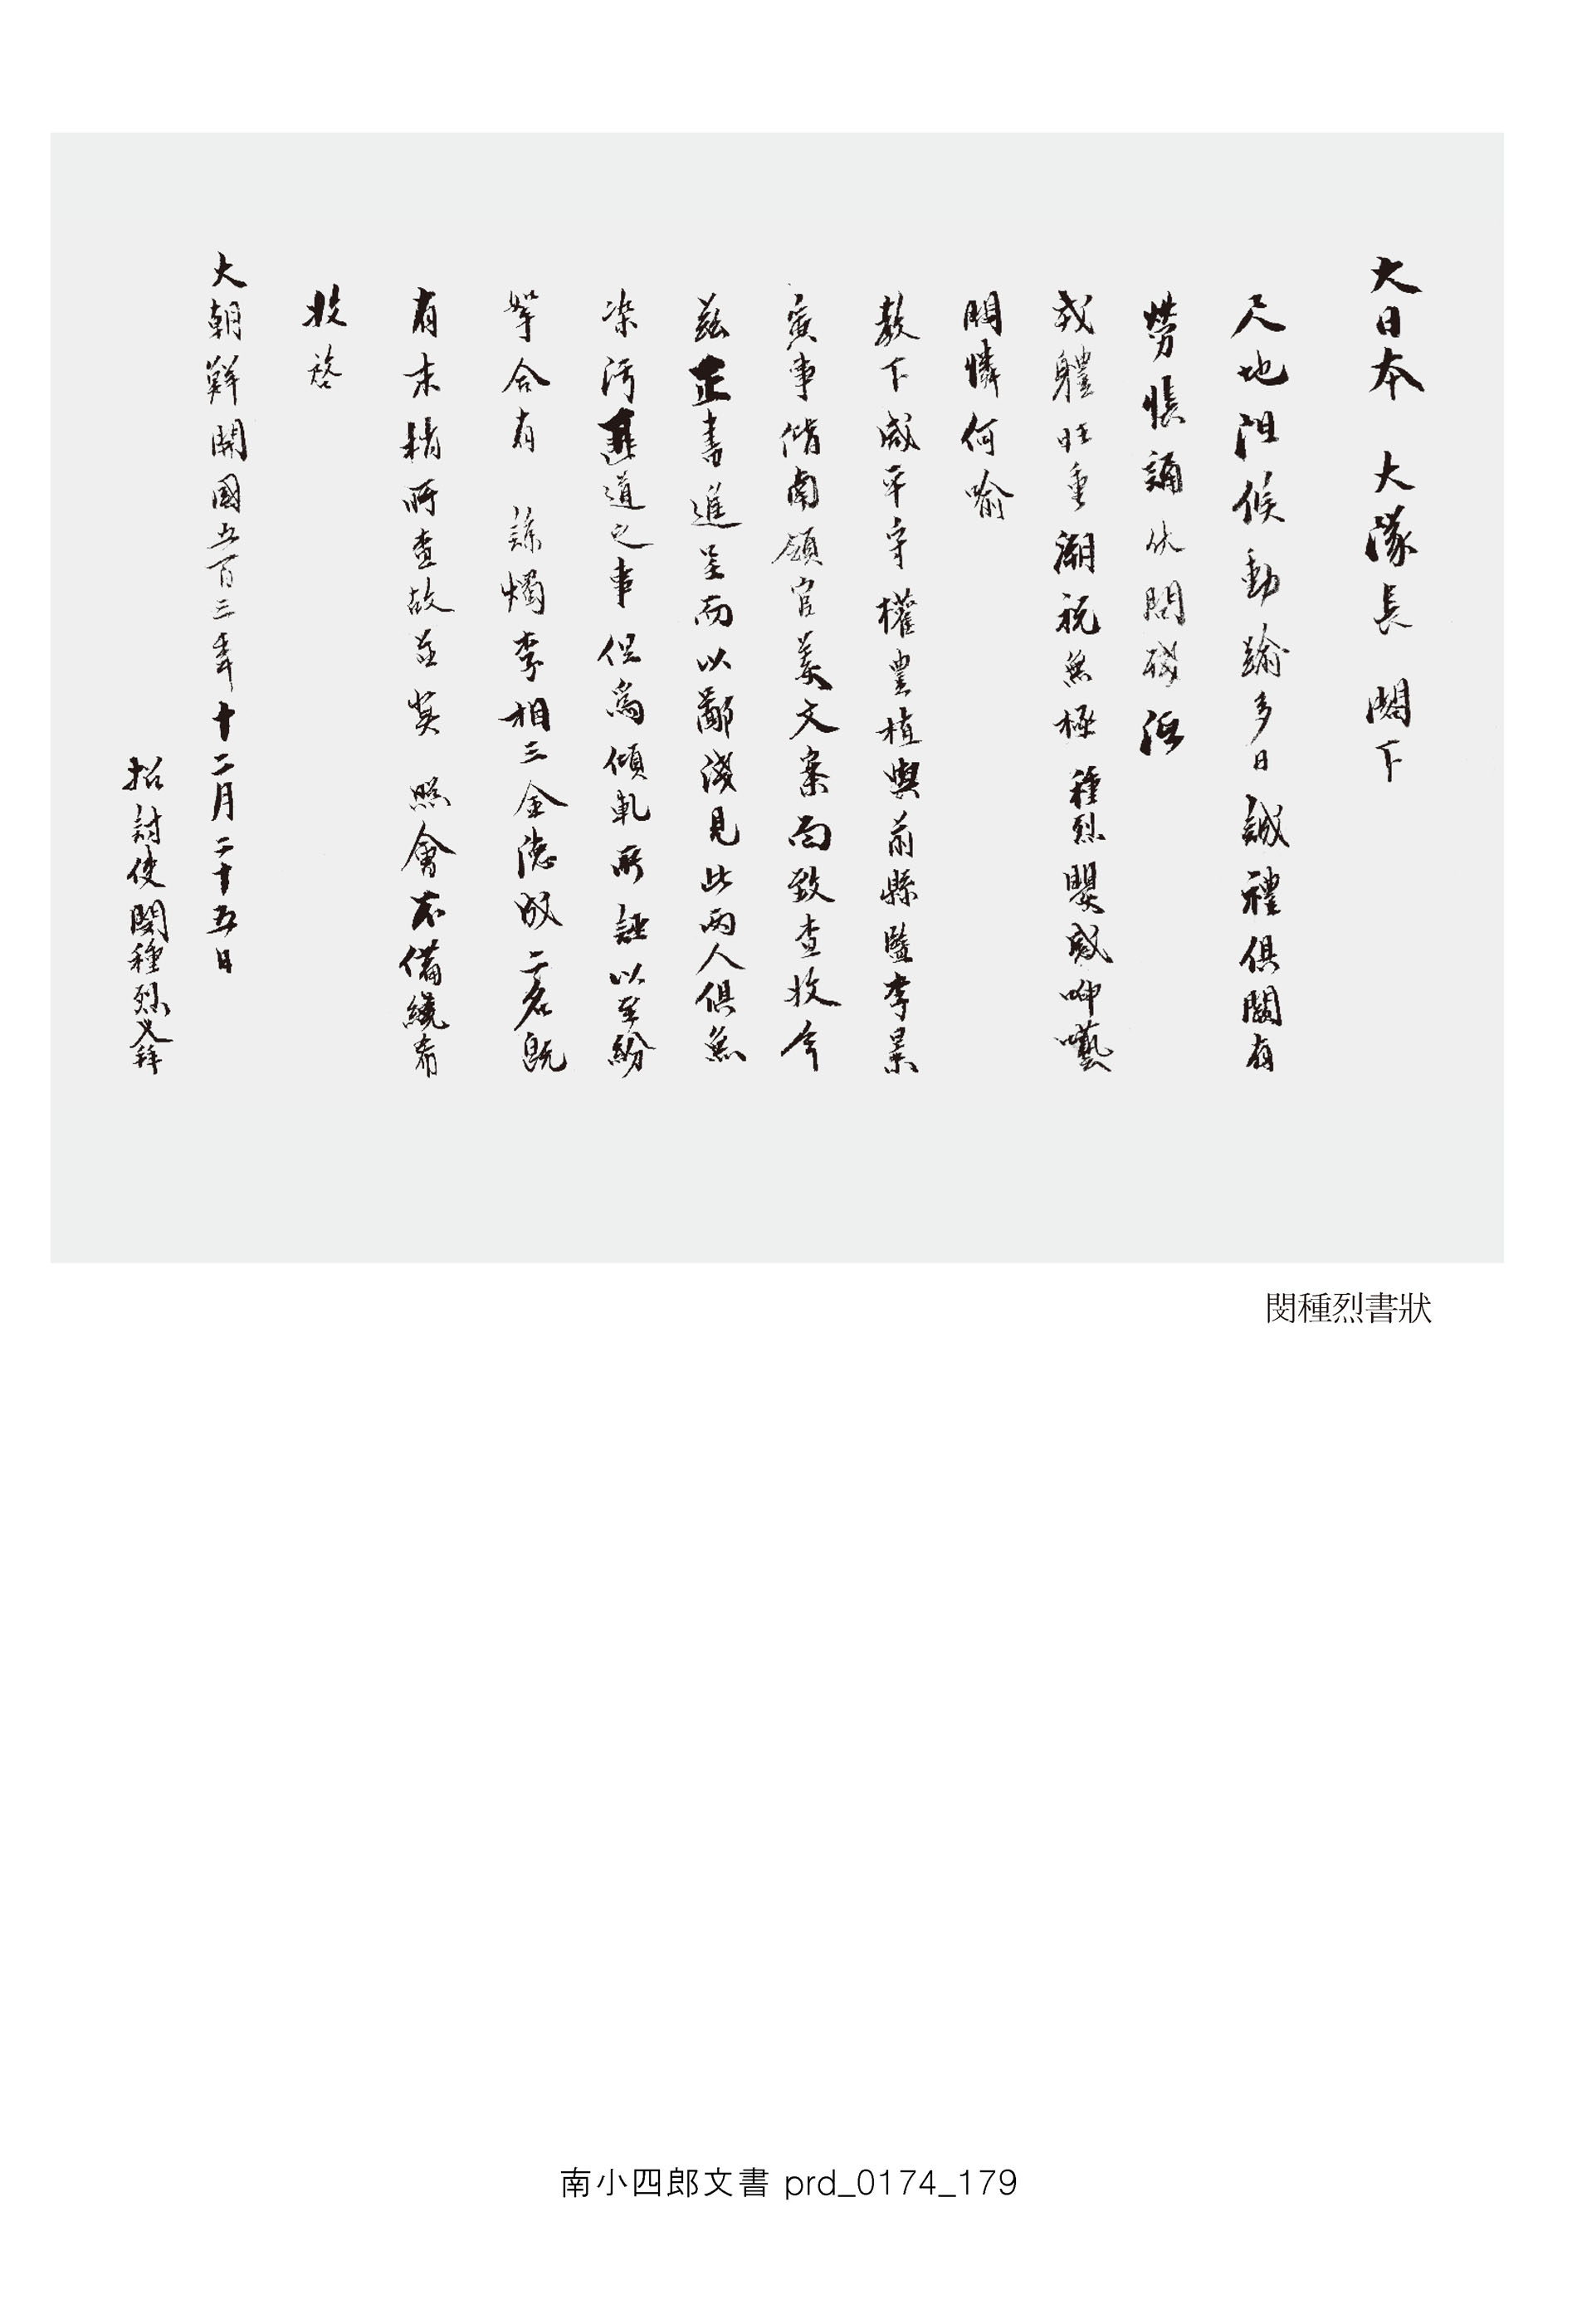 大日本 大隊長 閤下
尺地阻候動踰多日誠禮俱闕有
勞悵誦伏問
戎體旺重溯祝無極種烈嬰感呻囈
悶憐何喩
教下咸平守權豊植與前縣監李景
寅事偕南領官美文案而致查收今
玆正書進呈而以鄙淺見此兩人俱無
染汚匪道之事但爲傾軋所誣以至紛
拏合有 諒燭李相三金德成二名旣
有未精所查故並與 照會不備繞希
收啓
大朝鮮開國五百三年十二月二十五日
招討使閔種烈又拜
閔種烈書狀
南小四郎文書 prd_0174_179